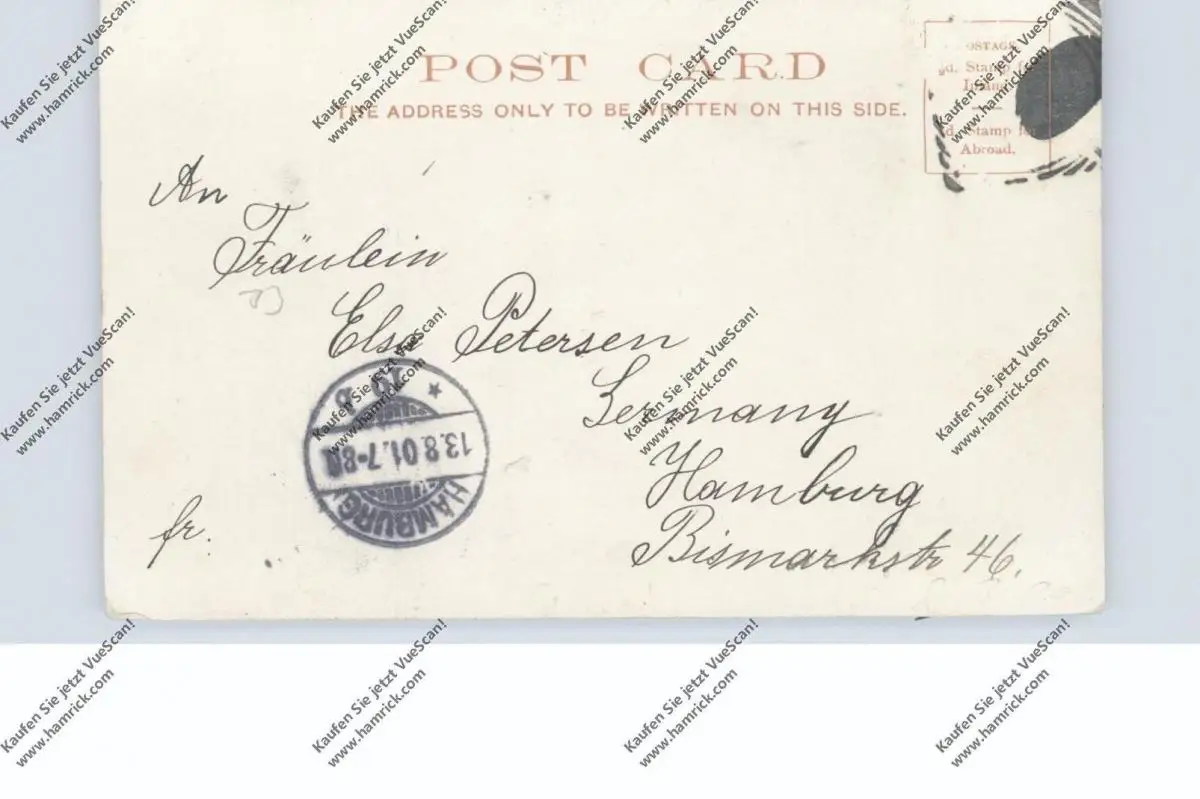 POST CARD
THE ADDRESS ONLY TO BE WRITTEN ON THIS SIDE.
OSTAGE
d. Stamp f
Inland
d. Stamp fo
Abroad.
An
Fräulein
Elsa Petersen
Germany
Hamburg
Bismarkstr 46.
fr.
HAMBURG
13.8.01.7-8N
19
Kaufen Sie jetzt VueScan!
www.hamrick.com
Kaufen Sie jetzt VueScan!
www.hamrick.com
Kaufen Sie jetzt VueScan!
www.hamrick.com
Kaufen Sie jetzt VueScan!
www.hamrick.com
Kaufen Sie jetzt VueScan!
www.hamrick.com
Kaufen Sie jetzt VueScan!
www.hamrick.com
Kaufen Sie jetzt VueScan!
www.hamrick.com
Kaufen Sie jetzt VueScan!
www.hamrick.com
Kaufen Sie jetzt VueScan!
www.hamrick.com
Kaufen Sie jetzt VueScan!
www.hamrick.com
Kaufen Sie jetzt VueScan!
www.hamrick.com
Kaufen Sie jetzt VueScan!
www.hamrick.com